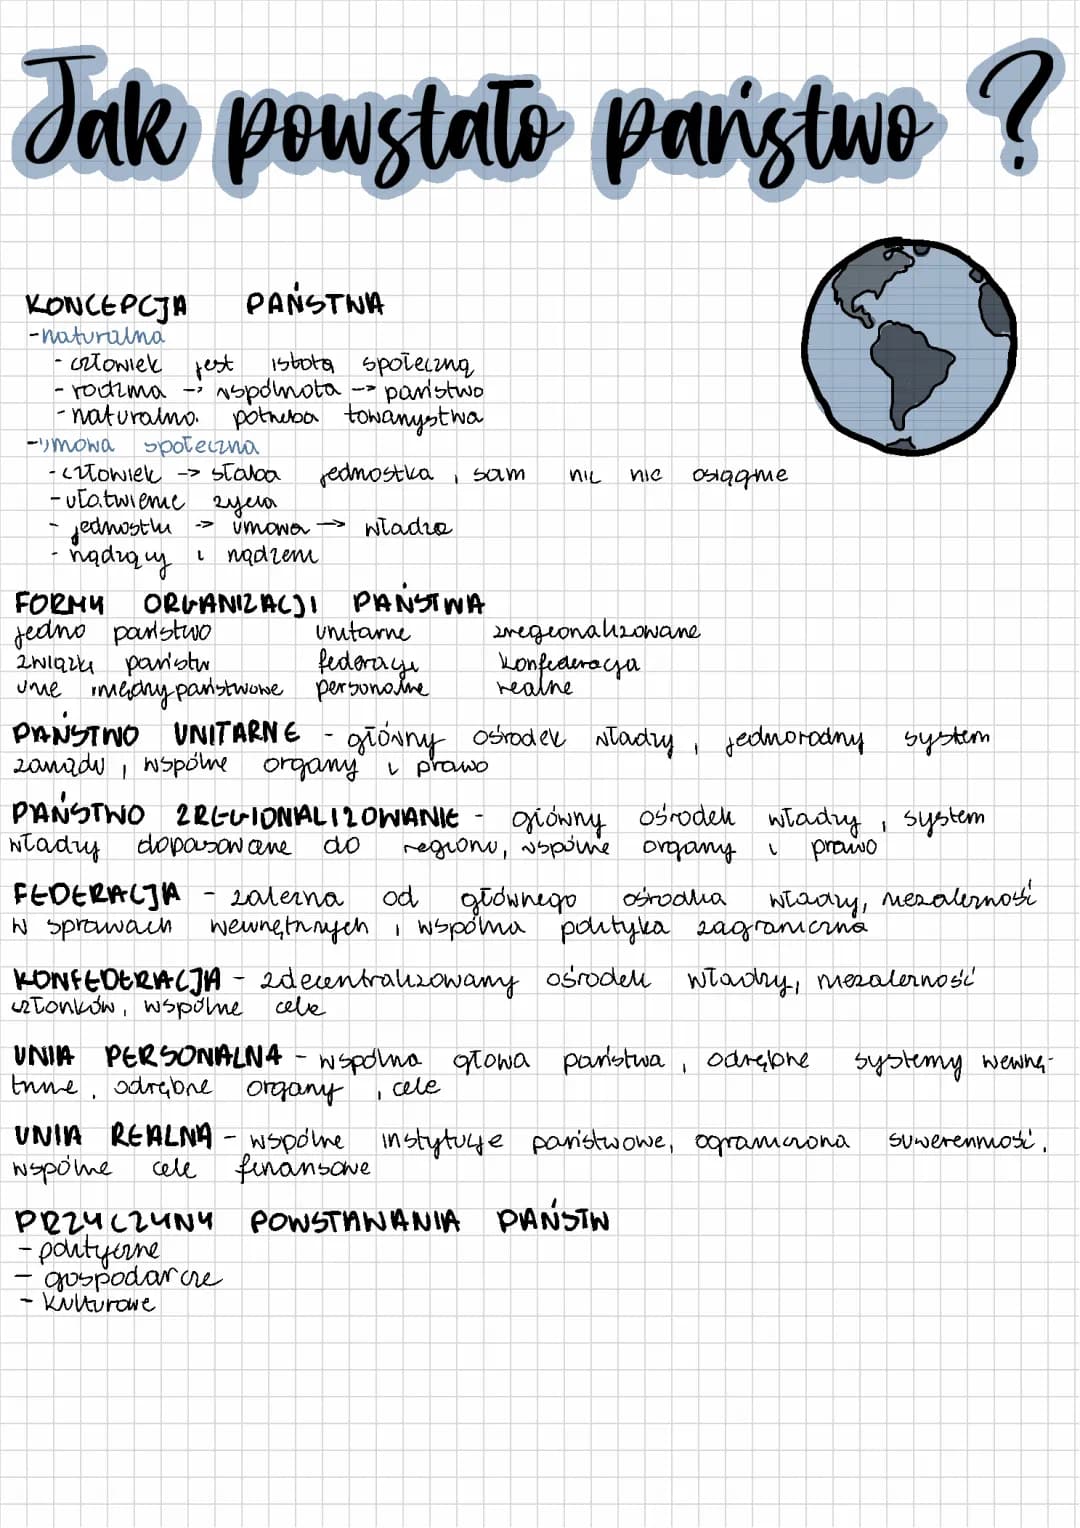 Jak powstało państwo ?
KONCEPCJA PAŃSTWA
-naturalna
- człowiek jest istotą społeczną
- rodzina -> wspólnota -> państwo
- naturalna potrzeba towarzystwa
-umowa społeczna
- człowiek -> słaba jednostka, sam nic nie osiągnie
- ułatwienie życia
- jednostki -> umowa -> władza
- rządzący i rządzeni
FORMY ORGANIZACJI PAŃSTWA
jedno państwo unitarne zregionalizowane
związki państw federacje konfederacja
unie międzypaństwowe personalne realne
PAŃSTWO UNITARNE - główny ośrodek władzy, jednorodny system
zarządu, wspólne organy i prawo
PAŃSTWO ZREGIONALIZOWANE - główny ośrodek władzy, system
władzy dopasowane do regionu, wspólne organy i prawo
FEDERACJA - zależna od głównego ośrodka władzy, niezależność
w sprawach wewnętrznych, wspólna polityka zagraniczna
KONFEDERACJA - zdecentralizowany ośrodek władzy, niezależność
członków, wspólne cele
UNIA PERSONALNA - wspólna głowa państwa, odrębne systemy wewnę-
trzne, odrębne organy, cele
UNIA REALNA - wspólne instytucje państwowe, ograniczona suwerenność,
wspólne cele finansowe
PRZYCZYNY POWSTAWANIA PAŃSTW
- polityczne
- gospodarcze
- kulturowe